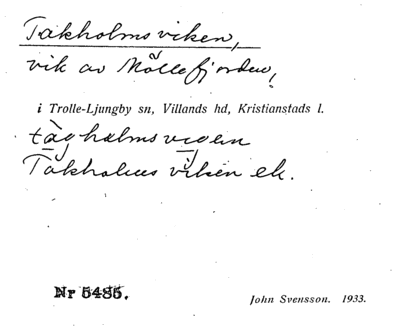 Takholmsviken,
vik av Möllefjorden,
i Trolle-Ljungby sn, Villands hd, Kristianstads l.
Takholms viken ek.
Nr 5485.
John Svensson. 1933.